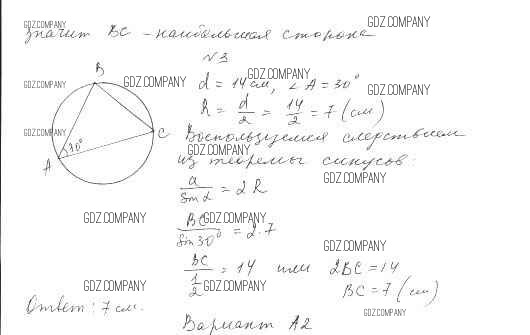 GDZ.COMPANY
GDZ.COMPANY
значит BC - наибольшая сторона
№3
GDZ.COMPANY
GDZ.COMPANY
GDZ.COMPANY
GDZ.COMPANY
B
d = 14 см, ∠A = 30°
R = d/2 = 14/2 = 7 (см)
GDZ.COMPANY
C
Воспользуемся следствием
GDZ.COMPANY
A 30°
из теоремы синусов:
GDZ.COMPANY
a/sin α = 2R
GDZ.COMPANY
GDZ.COMPANY
BC/sin 30° = 2·7
GDZ.COMPANY
BC/(1/2) = 14 или 2BC = 14
GDZ.COMPANY
GDZ.COMPANY
BC = 7 (см)
Ответ: 7 см.
GDZ.COMPANY
Вариант А2